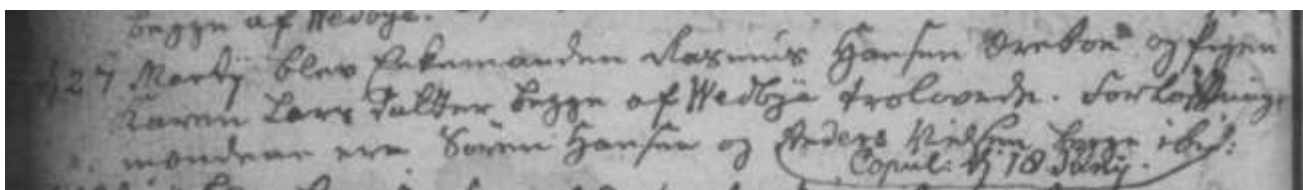 begge af Wedbye.
d 27 Martij blev Enkemanden Rasmus Hansen og Pigen
Karen Lars Datter begge af Wedbye trolovede. Forlovnings
mændene ere Sören Hansen og Anders Nielsen begge ibid:
Copul: dj 18 Junij.